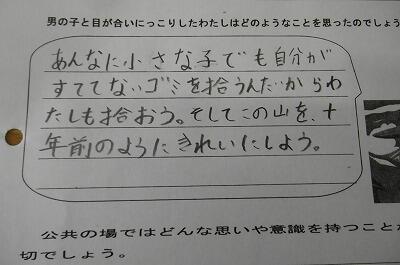 男の子と目が合いにっこりしたわたしはどのようなことを思ったのでしょう
あんなに小さな子でも自分が
すててないゴミを拾うんだからわ
たしも拾おう。そしてこの山を、十
年前のようにきれいにしよう。
公共の場ではどんな思いや意識を持つことが
切でしょう。